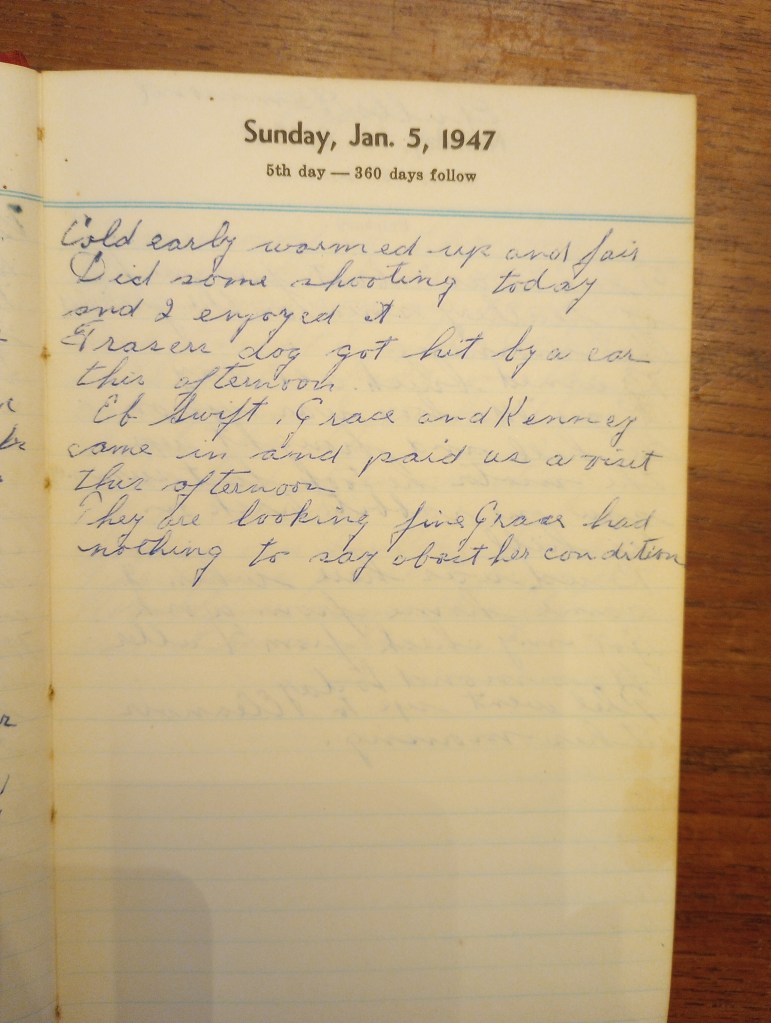 Sunday, Jan. 5, 1947
5th day — 360 days follow
Cold early warmed up and fair
Did some shooting today
and I enjoyed it
Frasers dog got hit by a car
this afternoon.
Eb Swift, Grace and Kenney
came in and paid us a visit
this afternoon
They are looking fine Grace had
nothing to say about her condition